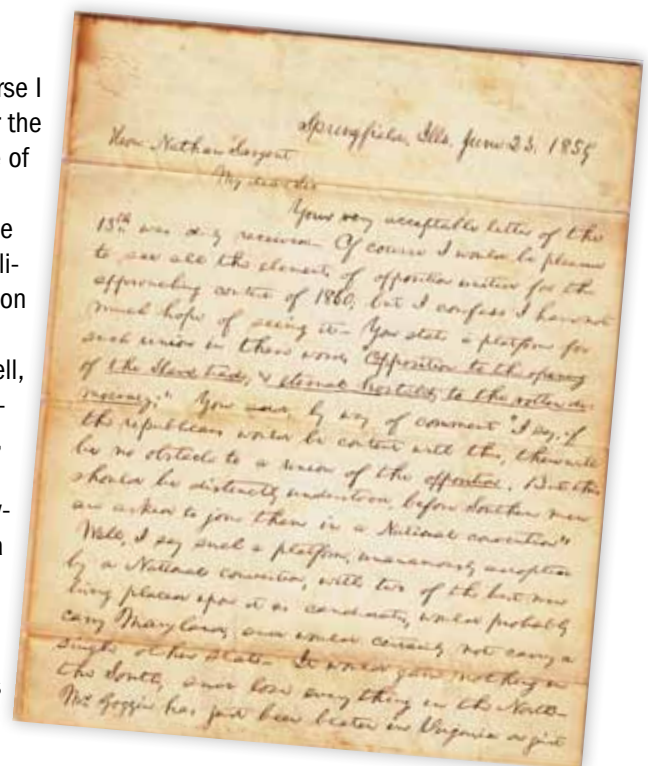 rse I
r the
of
e
li-
on
ell,
-
y-
Springfield, Ills. June 23. 1859
Hon. Nathan Sargent
My dear Sir
Your very acceptable letter of the
13th was duly received. Of course I would be pleased
to see all the elements of opposition united for the
approaching contest of 1860; but I confess I have not
much hope of seeing it. You state a platform for
such union in these words "Opposition to the opening
of the Slave-trade; & eternal hostility to the rotten de-
mocracy." You by way of comment "I say, if
the republicans would be content with this, there will
be no obstacle to a union of the opposition. But this
should be distinctly understood, before Southern men
are asked to join them in a National convention"
Well, I say such a platform, unanamously adopted
by a National convention, with two of the best men
living placed upon it as candidates, would probably
carry Maryland, and would certainly not carry a
single other state. It would gain nothing in
the South, and lose every thing in the North.
Mr. Goggin has just been beaten in Virginia on just